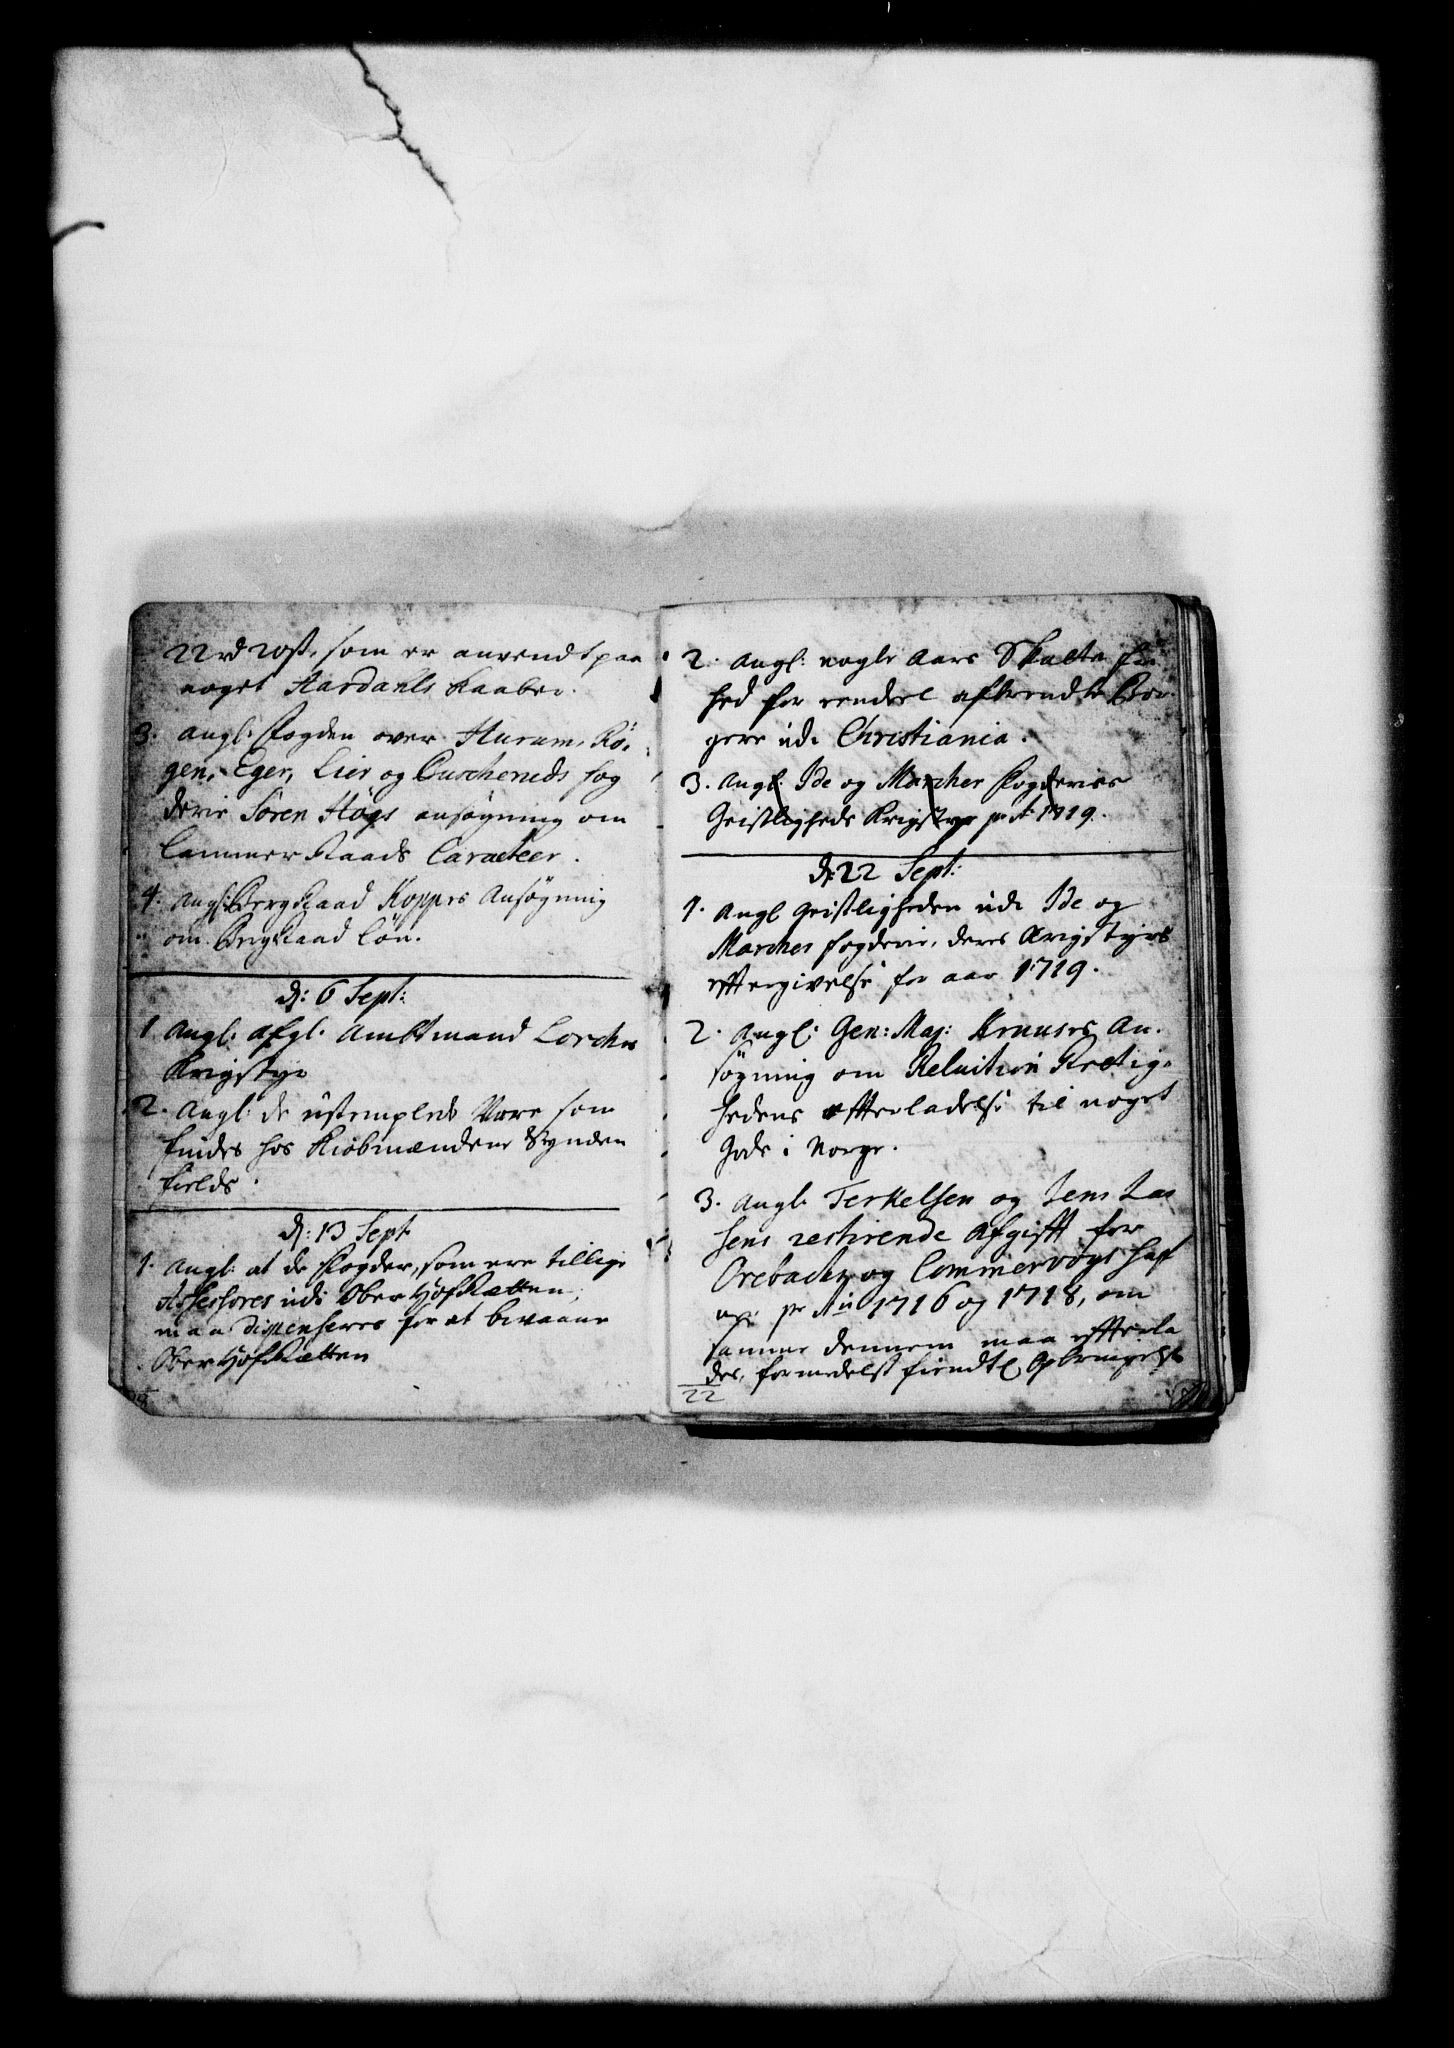 22 rd 20 ß, som er anvendt paa
noget Hardanls Kaaber.
3. Angl. Fogden over Hurum, Rö,
gen, Eger, Lier og Buscheruds fog
derie Sören Högs ansögning om
Cammer Raads Caracteer.
4. Angl: Berg Raad Koppes Ansögning
om Berg Raad Lön.
d: 6 Sept:
1 Angl. afgl. Ambtmand Lorches
Krigstyr
2. Angl: de ustemplede Vare som
findes hos Kiöbmændene Synden
fields.
d: 13 Sept
1. Angl: at de Fogder, som ere tillige
Assessores udi Ober Hof Retten,
maa dispenseres for at bevaane
Ober Hof Retten
2. Angl: nogle Aars Skatte fri
hed for eendeel afbrendte Bor-
gere udi Christiania.
3. Angl: Ide og Marcher Fogderies
Geistligheds Krigstyr pr Ao 1719.
d: 22 Sept:
1. Angl Geistligheden udi Ide og
Marches fogderie, deres Krigstyrs
efftergivelse for aar 1719.
2. Angl: Gen: Maj: Kruuses An-
sögning om Reluition Rettig-
hedens effterladelse til noget
Gods i Norge.
3. Angl. Terkelsen og Jens Las
sens restirende Afgifft for
Orebacken og Commervogs
pr Ao 1716 og 1718, om
samme dennem maa effterla
des, formedelst fiendtl Opbringelse
22